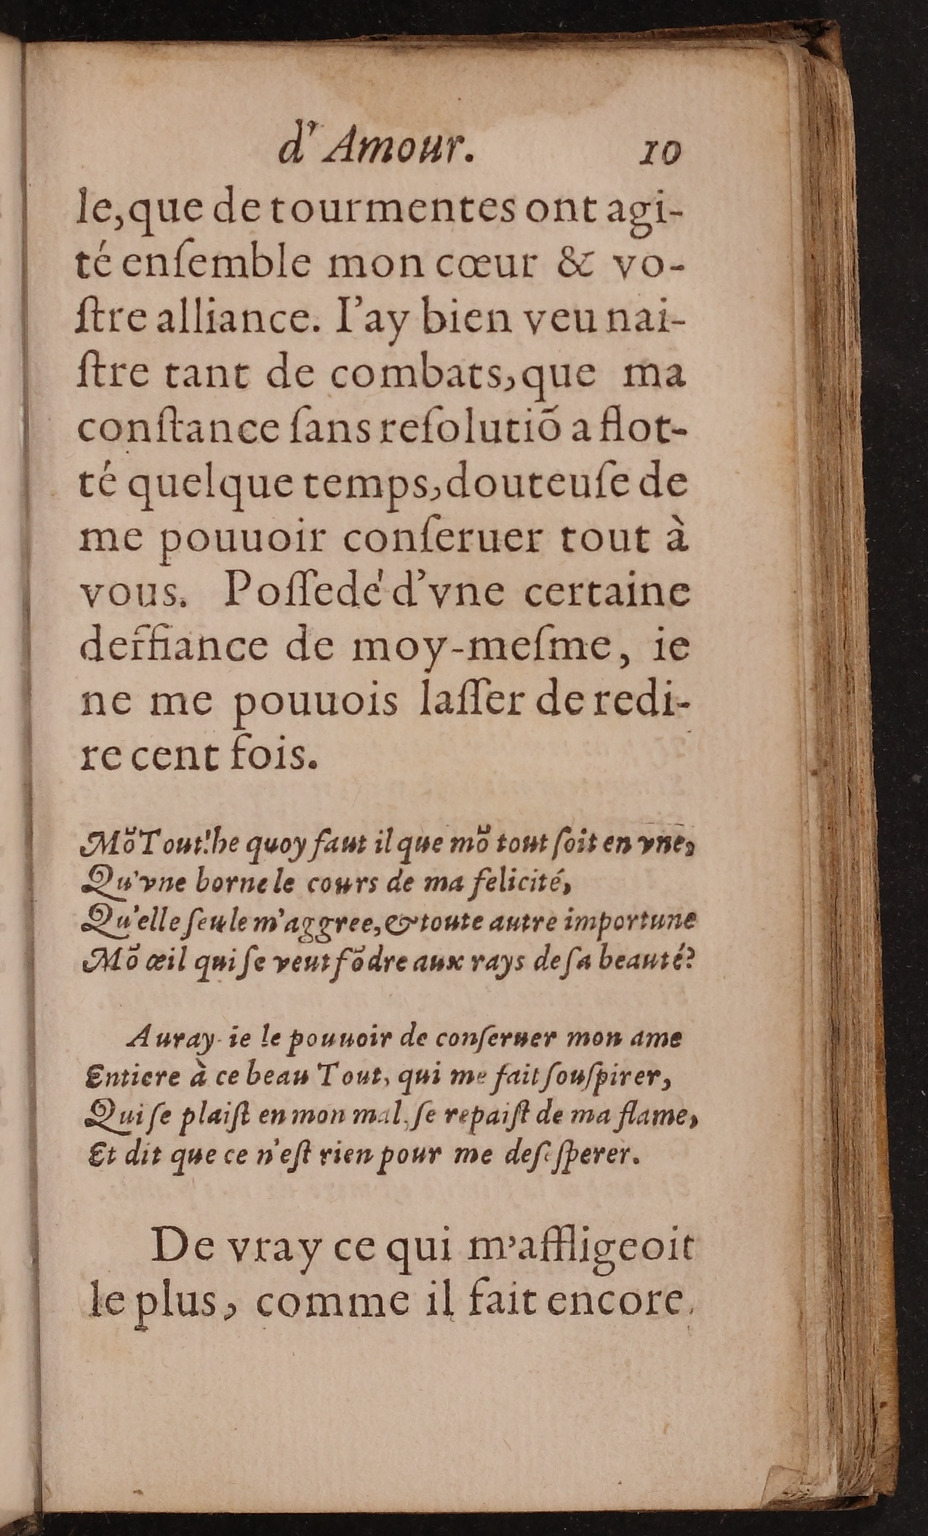 d'Amour. 10
le, que de tourmentes ont agi-
té enſemble mon cœur & vo-
ſtre alliance. I'ay bien veu nai-
ſtre tant de combats, que ma
conſtance ſans reſolutiõ a flot-
té quelque temps, douteuſe de
me pouuoir conſeruer tout à
vous. Poſſedé d'vne certaine
deffiance de moy-meſme, ie
ne me pouuois laſſer de redi-
re cent fois.
Mõ Tout! he quoy faut il que mõ tout ſoit en vne,
Qu'vne borne le cours de ma felicité,
Qu'elle ſeule m'aggree, & toute autre importune
Mõ œil qui ſe veut fõdre aux rays de ſa beauté?
Auray-ie le pouuoir de conſeruer mon ame
Entiere à ce beau Tout, qui me fait ſouſpirer,
Qui ſe plaiſt en mon mal, ſe repaiſt de ma flame,
Et dit que ce n'eſt rien pour me deſeſperer.
De vray ce qui m'affligeoit
le plus, comme il fait encore,